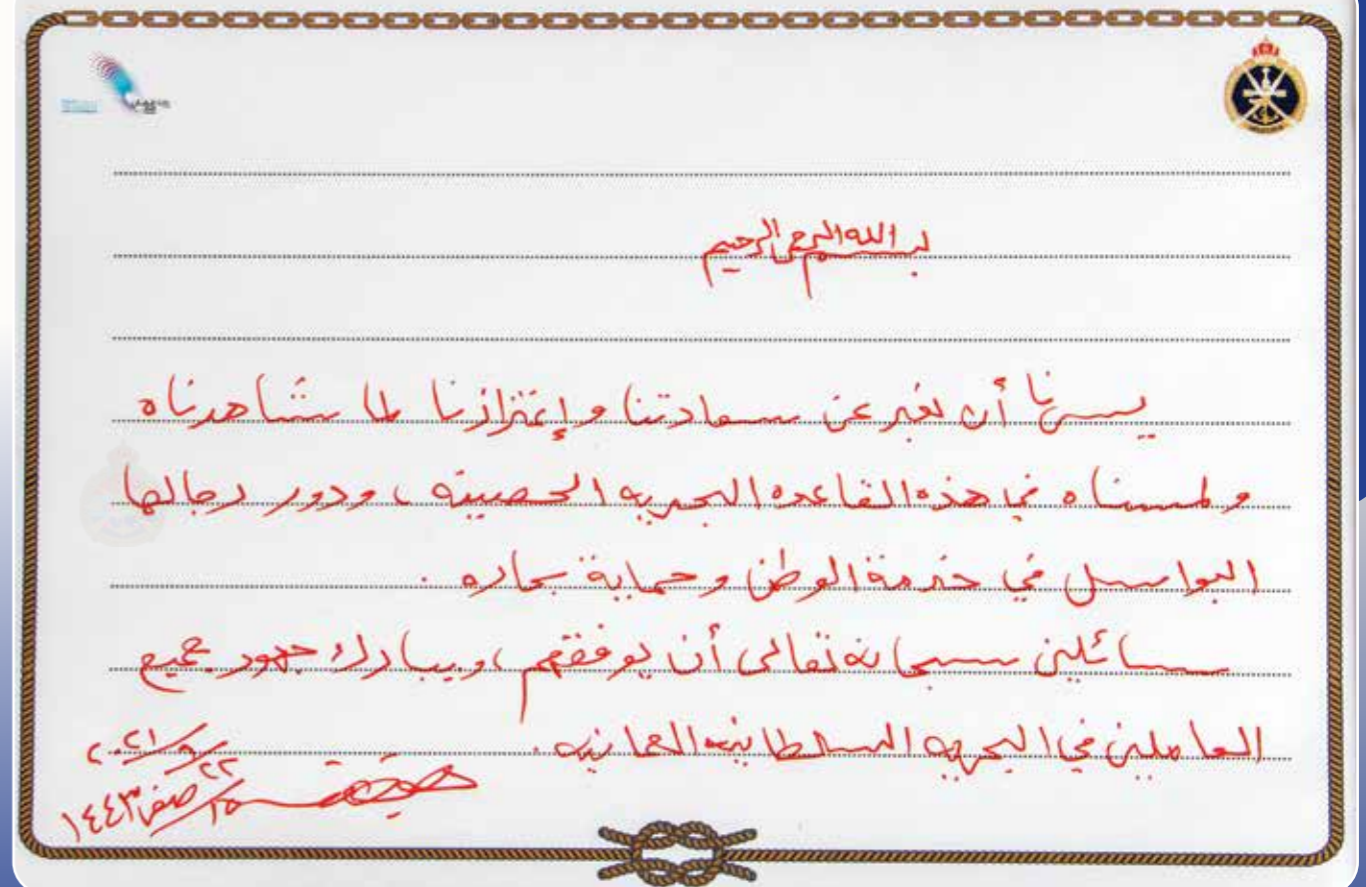 بسم الله الرحمن الرحيم
يسرنا أن نعبر عن سعادتنا وإعتزازنا لما شاهدناه
ولمسناه في هذه القاعده البحريه الحصينه ، ودور رجالها
البواسل في خدمة الوطن وحماية بحاره .
سائلين سبحانه تعالى أن يوفقهم ، ويبارك جهود جميع
العاملين في البحريه السلطانيه العمانيه .
٢٢/٩/٢٠٢١
١٥/صفر/١٤٤٣